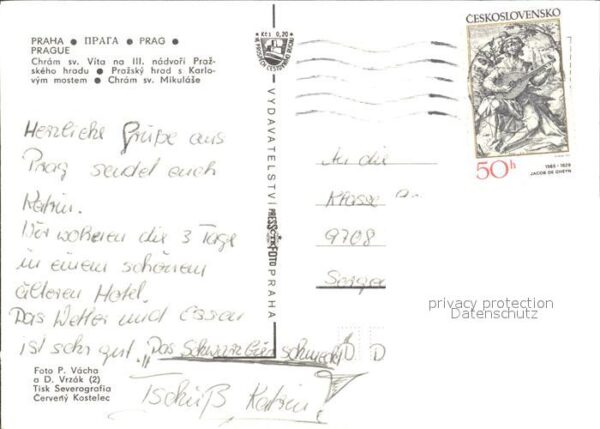 PRAHA ● ПРАГА ● PRAG ●
PRAGUE
Chrám sv. Víta na III. nádvoří Praž-
ského hradu ● Pražský hrad s Karlo-
vým mostem ● Chrám sv. Mikuláše
Herzliche Grüße aus
Prag sendet euch
Katrin.
Wir wohnen die 3 Tage
in einem schönen
älteren Hotel.
Das Wetter und Essen
ist sehr gut. „Das Schwarzbier schmeckt
Tschüß Katrin
Foto P. Vácha
a D. Vrzák (2)
Tisk Severografia
Červený Kostelec
Kčs 0,20
VYDAVATELSTVÍ PRESSFOTO PRAHA
ČESKOSLOVENSKO
50h
1565 - 1629
JACOB DE GHEYN
An die
Klasse
9708
privacy protection
Datenschutz
D D